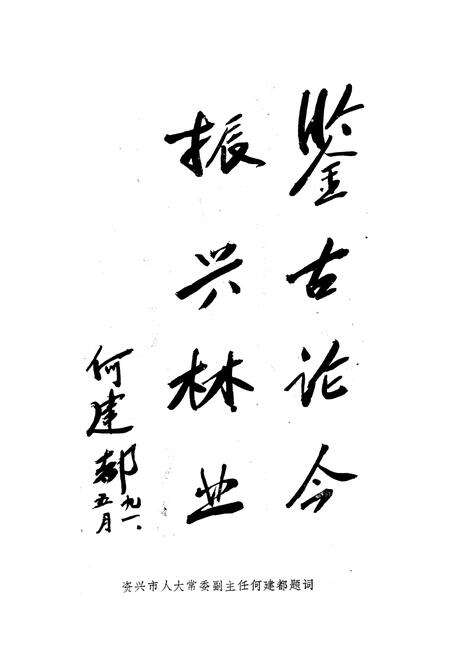 鉴古论今
振兴林业
何建都
九一、
五月
资兴市人大常委副主任何建都题词